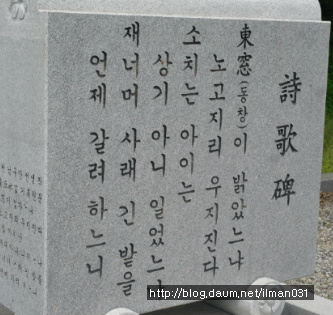 詩歌碑
東窓(동창)이 밝았느냐
노고지리 우지진다
소치는 아이는
상기 아니 일었느냐
재너머 사래 긴 밭을
언제 갈려 하느니
http://blog.daum.net/ilman031